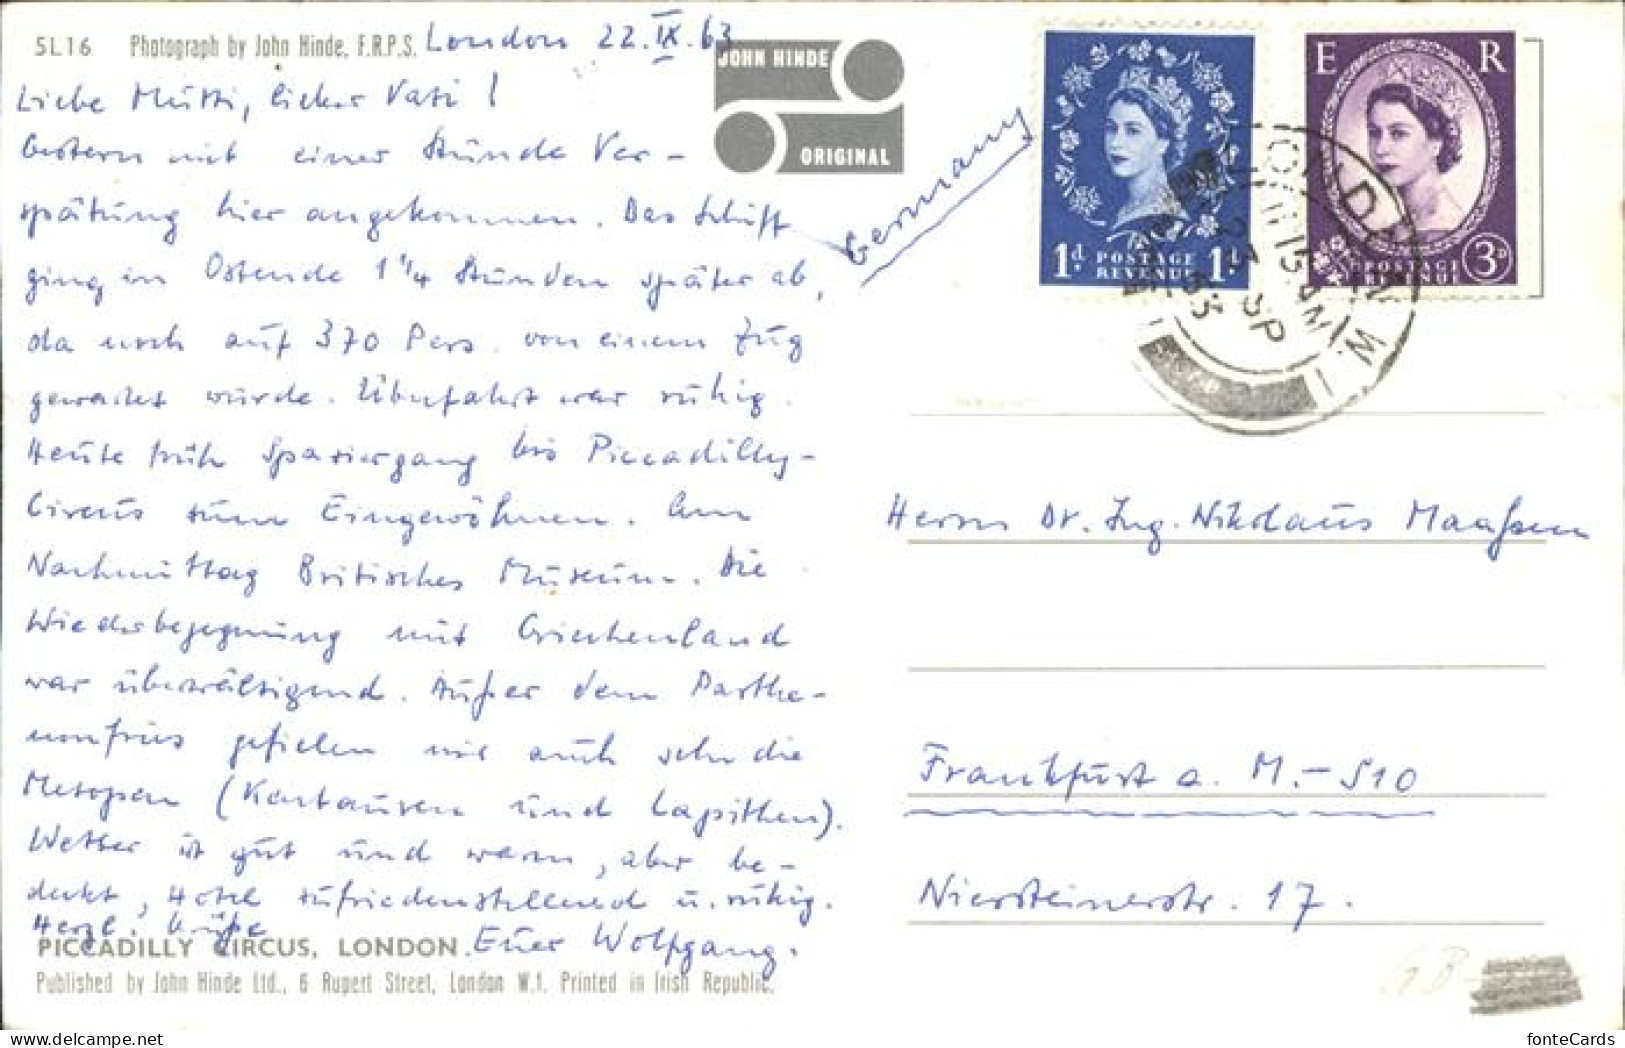 5L16 Photograph by John Hinde, F.R.P.S.
London 22.IX.63
JOHN HINDE
ORIGINAL
Liebe Mutti, lieber Vati!
Gestern mit einer Stunde Ver-
spätung hier angekommen. Das Schiff
ging in Ostende 1 1/4 Stunden später ab,
da noch auf 370 Pers. von einem Zug
gewartet wurde. Überfahrt war ruhig.
Heute früh Spaziergang bis Piccadilly-
Circus zum Eingewöhnen. Am
Nachmittag Britisches Museum. Die
Wiederbegegnung mit Griechenland
war überwältigend. Außer dem Parthe-
nonfries gefielen mir auch sehr die
Metopen (Kentauren und Lapithen).
Wetter ist gut und warm, aber be-
deckt, Hotel zufriedenstellend u. ruhig.
Herzl. Grüße
Euer Wolfgang.
PICCADILLY CIRCUS, LONDON.
Published by John Hinde Ltd., 6 Rupert Street, London W.1. Printed in Irish Republic.
Germany
1d POSTAGE REVENUE 1d
E R
POSTAGE REVENUE 3D
LONDON W.1
15 PM
SP
Herrn Dr. Ing. Nikolaus Maaßen
Frankfurt a. M. - S10
Niersteinerstr. 17.
GB
fonteCards